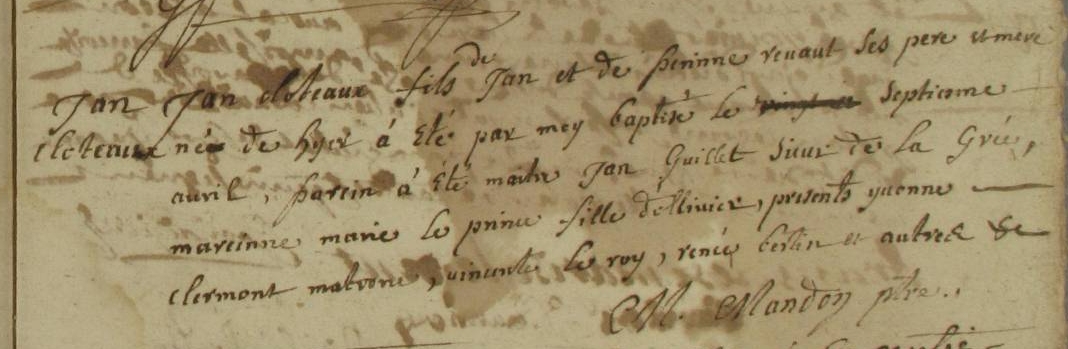 Jan Jan cloteaux fils de Jan et de perinne revaut ses pere et mere
cloteaux né de hyer á Eté par moy baptisé le septieme
avril, parein á Eté maitre Jan Guillet Sieur de la Grée,
mareinne marie le prince fille d'ollivier, presents yvonne
clermont matrone, vincente le roy, renée berlin et autres &c
M. Mandon ptre.